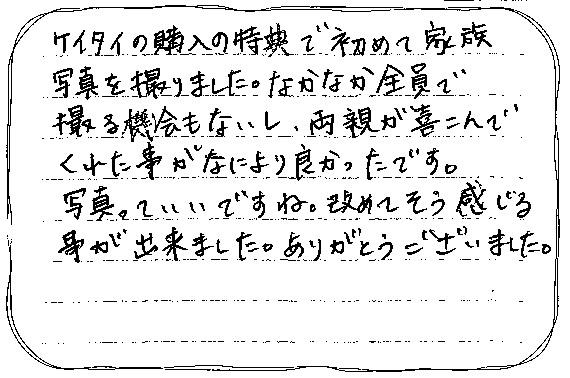 ケイタイの購入の特典で初めて家族
写真を撮りました。なかなか全員で
撮る機会もないし、両親が喜こんで
くれた事がなにより良かったです。
写真っていいですね。改めてそう感じる
事が出来ました。ありがとうございました。